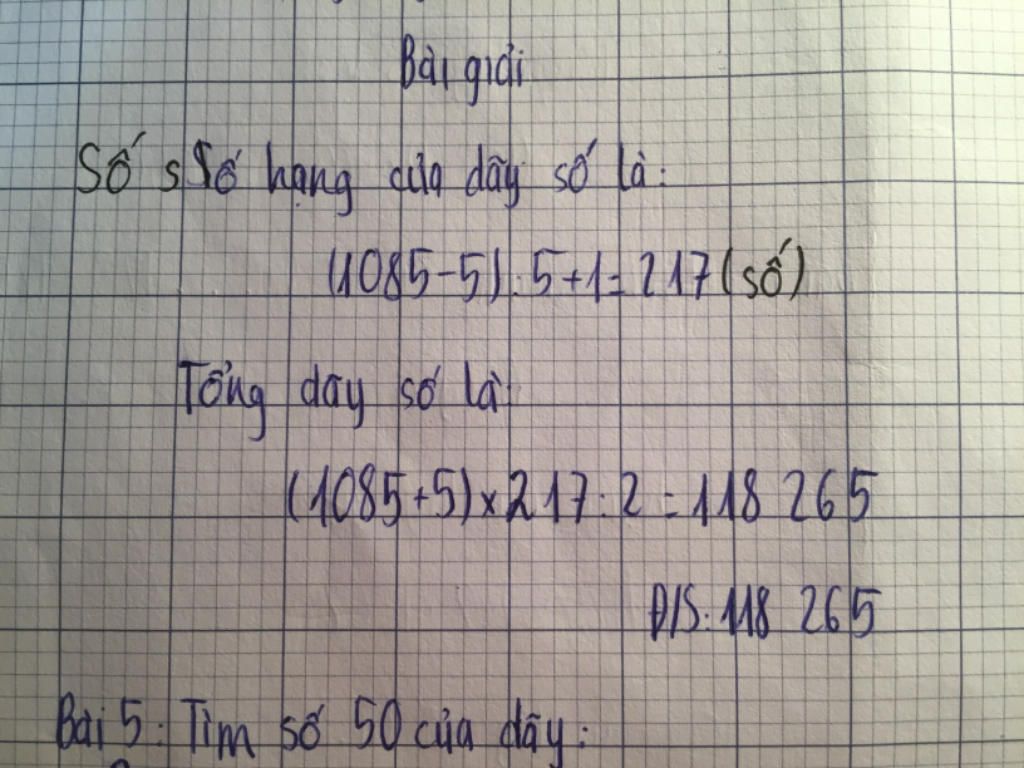 Bài giải
Số số hạng của dãy số là:
(1085-5):5+1=217(số)
Tổng dãy số là:
(1085+5)×217:2=118 265
Đ/S: 118 265
Bài 5: Tìm số 50 của dãy: